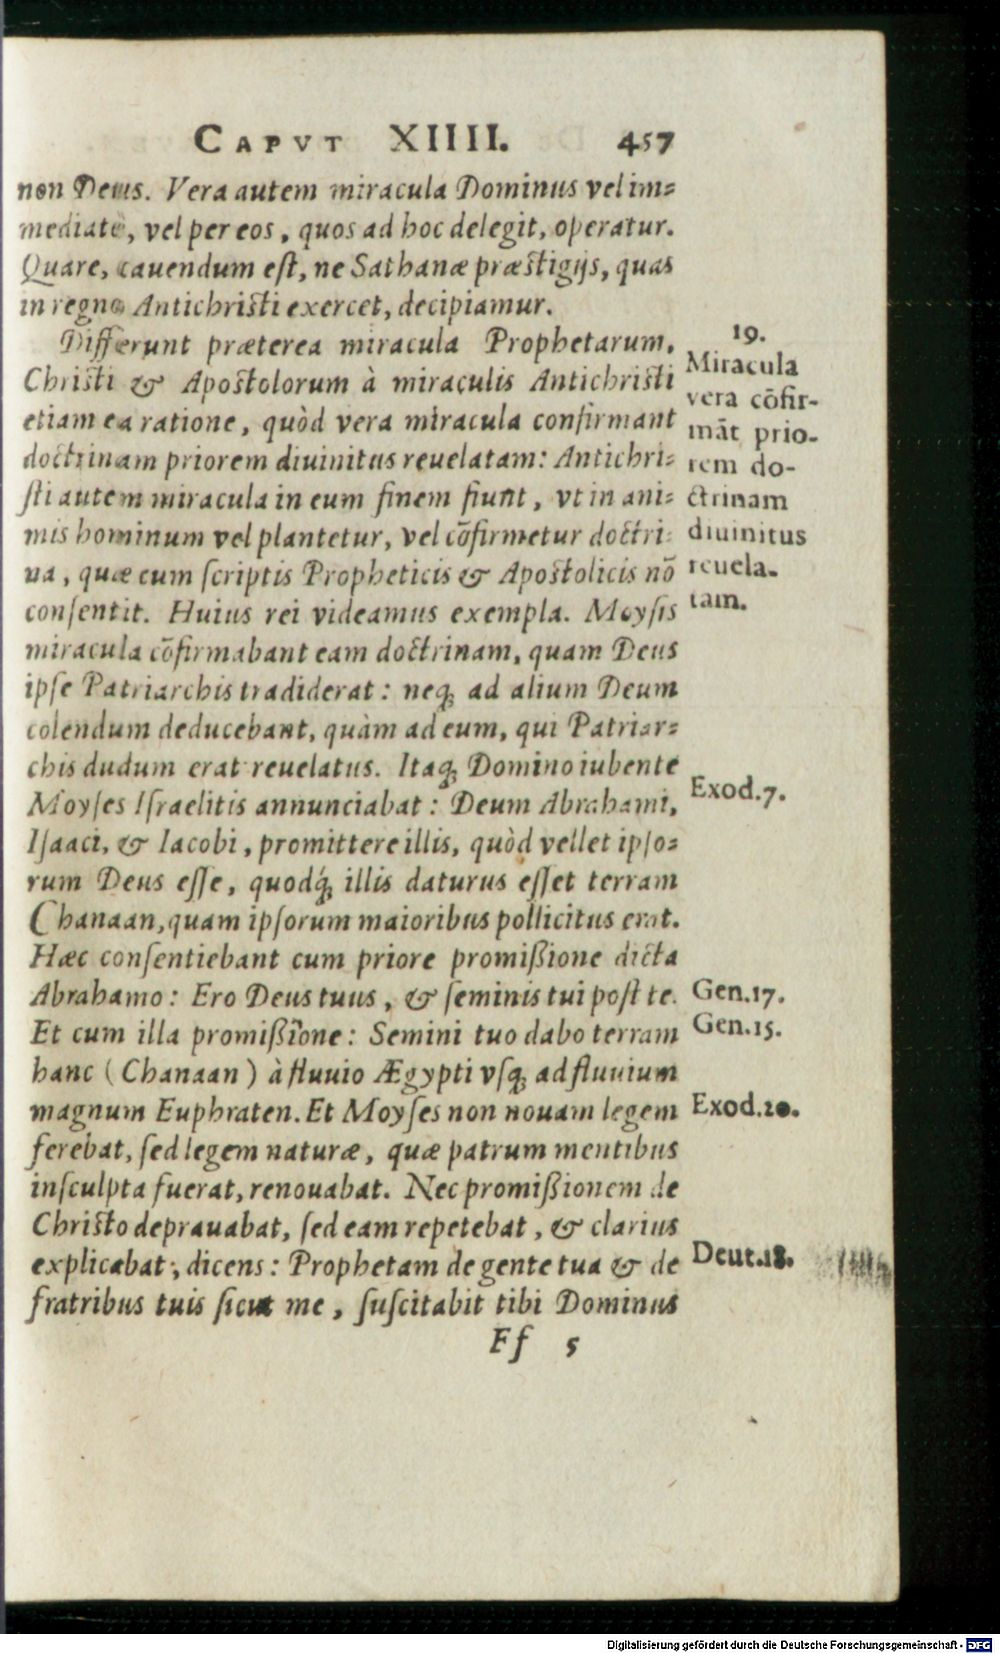 CAPVT XIIII. 457
non Deus. Vera autem miracula Dominus vel im-
mediatè, vel per eos, quos ad hoc delegit, operatur.
Quare, cauendum eſt, ne Sathanæ præſtigijs, quas
in regno Antichriſti exercet, decipiamur.
Differunt præterea miracula Prophetarum,
Chriſti & Apoſtolorum à miraculis Antichriſti
etiam ea ratione, quòd vera miracula confirmant
doctrinam priorem diuinitus reuelatam: Antichri-
ſti autem miracula in eum finem fiunt, vt in ani-
mis hominum vel plantetur, vel cōfirmetur doctri-
na, quæ cum ſcriptis Propheticis & Apoſtolicis nō
conſentit. Huius rei videamus exempla. Moyſis
miracula cōfirmabant eam doctrinam, quam Deus
ipſe Patriarchis tradiderat: neq; ad alium Deum
colendum deducebant, quàm ad eum, qui Patriar-
chis dudum erat reuelatus. Itaq; Domino iubente
Moyſes Iſraelitis annunciabat: Deum Abrahami,
Iſaaci, & Iacobi, promittere illis, quòd vellet ipſo-
rum Deus eſſe, quodq́; illis daturus eſſet terram
Chanaan, quam ipſorum maioribus pollicitus erat.
Hæc conſentiebant cum priore promißione dicta
Abrahamo: Ero Deus tuus, & ſeminis tui poſt te.
Et cum illa promißione: Semini tuo dabo terram
hanc (Chanaan) à fluuio Ægypti vſq; ad fluuium
magnum Euphraten. Et Moyſes non nouam legem
ferebat, ſed legem naturæ, quæ patrum mentibus
inſculpta fuerat, renouabat. Nec promißionem de
Chriſto deprauabat, ſed eam repetebat, & clarius
explicabat, dicens: Prophetam de gente tua & de
fratribus tuis ſicut me, ſuſcitabit tibi Dominus
Ff 5
19.
Miracula
vera cōfir-
māt prio-
rem do-
ctrinam
diuinitus
reuela-
tam.
Exod.7.
Gen.17.
Gen.15.
Exod.20.
Deut.18.
Digitalisierung gefördert durch die Deutsche Forschungsgemeinschaft - DFG